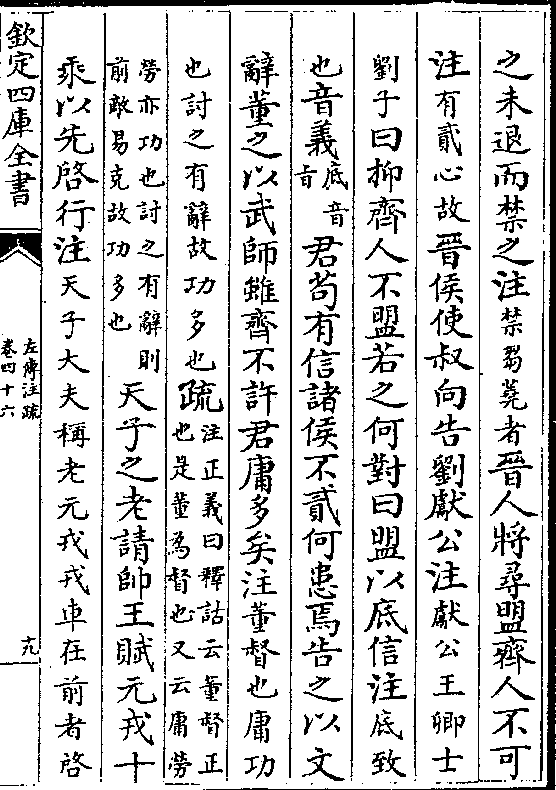 之未退而禁之注禁芻蕘者晉人將尋盟齊人不可
注有貳心故晉侯使叔向告劉獻公注獻公王卿士
劉子曰抑齊人不盟若之何對曰盟以底信注底致
也音義底音旨君苟有信諸侯不貳何患焉告之以文
辭董之以武師雖齊不許君庸多矣注董督也庸功
也討之有辭故功多也疏注正義曰釋詁云董督正也是董為督也又云庸勞
勞亦功也討之有辭則前敵易克故功多也天子之老請帥王賦元戎十
乘以先啓行注天子大夫稱老元戎戎車在前者啓
欽定四庫全書
左傳注疏
卷四十六
十九